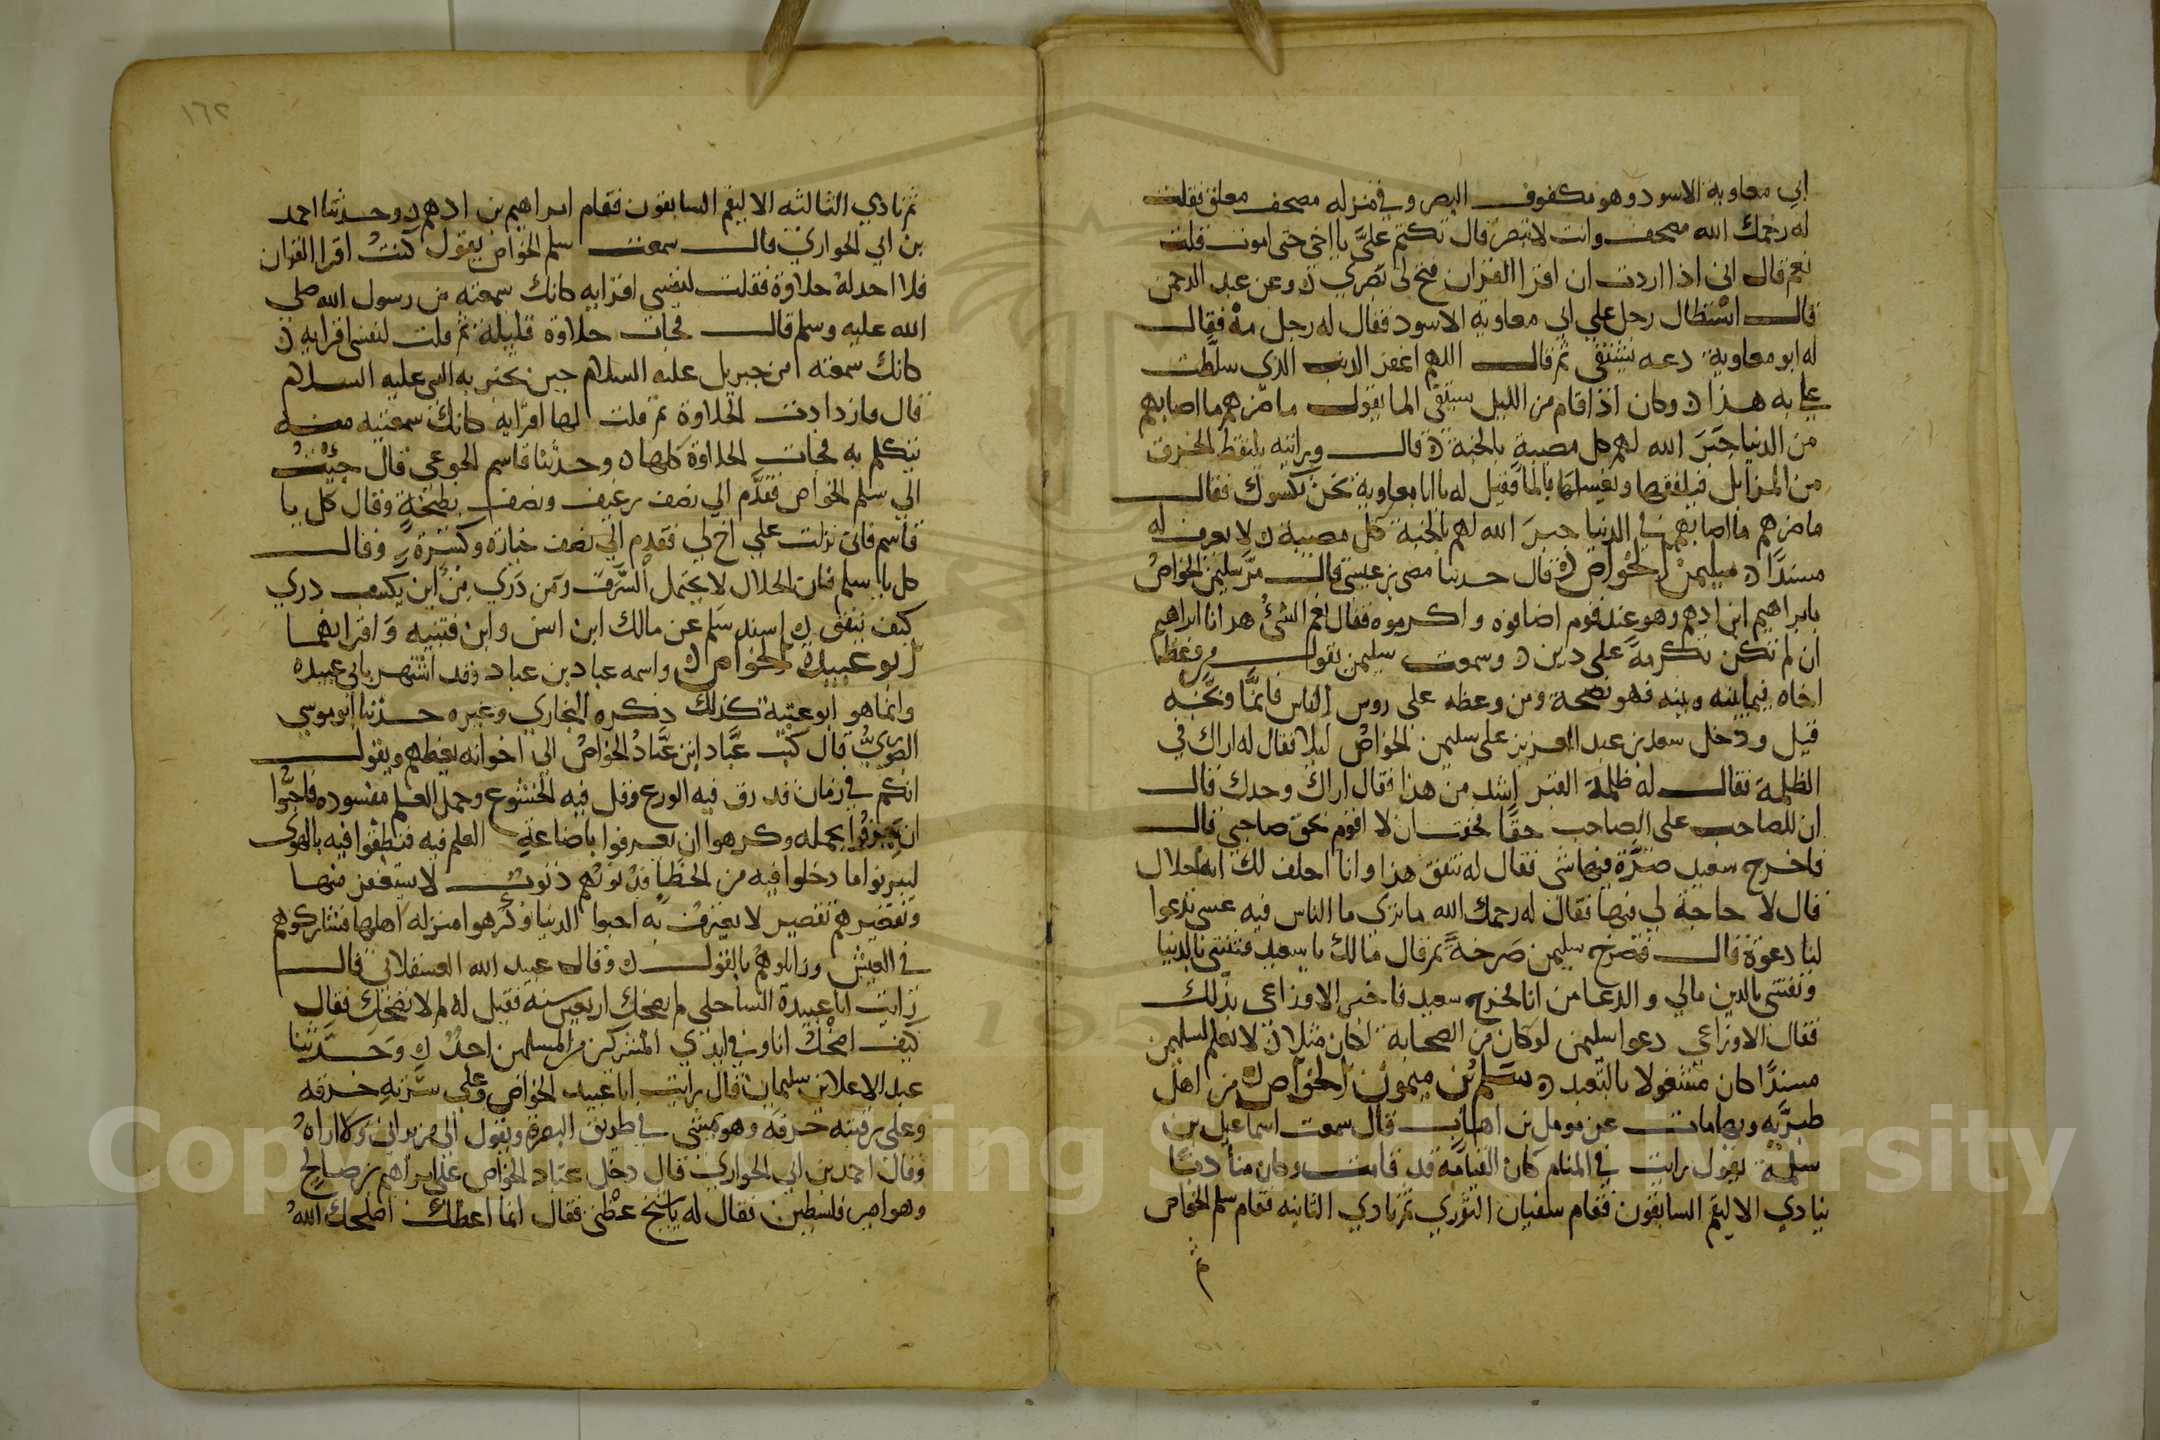 ابي معاوية الاسود وهو مكفوف البصر وفي منزله مصحف معلق فقلت
له رحمك الله مصحف وانت لا تبصر قال تكتم عليَّ يا اخي حتى اموت قلت
نعم قال اني اذا اردت ان اقرا القران فتح لي بصري ن وعن عبد الرحمن
قال استطال رجل علي ابي معاوية الاسود فقال له رجل مه فقال
له ابو معاوية دعه يشتفي ثم قال اللهم اغفر الذنب الذي سلطت
علي به هذا ن وكان اذا قام من الليل يستقي الما يقول ما ضرهم ما اصابهم
من الدنيا جَبَرَ الله لهم كل مصيبة بالجنة ن قال ورايته يلتقط الخرق
من المزابل فيلفقها ويغسلها بالما فقيل له يا ابا معاوية نحن نكسوك فقال
ما ضرهم ما اصابهم في الدنيا جبرَ الله لهم بالجنة كل مصيبة ن لا يعرف له
مسندًا ن سليمن الخواص ن قال حدثنا مضى بن عيسى قال مرَّ سليمن الخواص
بابراهيم ابن ادهم وهو عند قوم اضافوه واكرموه فقال نعم الشئ هذا يا ابراهيم
ان لم تكن تكرمة على دين ن وسمعت سليمن يقول من وعظ
اخاه فيما بينه وبينه فهو نصيحة ومن وعظه على روس الناس فانما وبَّخه
قيل ودخل سعيد بن عبد العزيز على سليمن الخواص ليلا فقال له اراك في
الظلمة فقال له ظلمة القبر اشد من هذا فقال اراك وحدك قال
ان للصاحب على الصاحب حقًا فخفت ان لا اقوم بحق صاحبي قال
فاخرج سعيد صرَّة فيها شي فقال له تنفق هذا وانا احلف لك انه حلال
قال لا حاجة لي فيها فقال له رحمك الله ما ترى ما الناس فيه عسى تدعوا
لنا دعوة قال فصرخ سليمن صرخةً ثم قال مالك يا سعيد فتنتني بالدنيا
وتفتني بالدين مالي والدعا من انا فخرج سعيد فاخبر الاوزاعي بذلك
فقال الاوزاعي دعوا سليمن لو كان من الصحابة لكان مثلا ن لا يعلم لسليمن
مسندًا كان مشغولا بالتعبد ن سلم بن ميمون الخواص ن من اهل
طبريّه وبها مات عن مومل بن اهاب قال سمعت اسماعيل بن
سلمة يقول رايت في المنام كان القيامة قد قامت وكان مناديًا
ينادي الا ليقم السابقون فقام سفيان الثوري ثم نادي الثانيه فقام سلم الخواص
ثم
١٦٢
ثم نادي الثالثه الا ليقم السابقون فقام ابراهيم بن ادهم ن وحدثنا احمد
بن ابي الحواري قال سمعت سلم الخواص يقول كنتُ اقرا القران
فلا اجد له حلاوة فقلت لنفسي اقرايه كانك سمعته من رسول الله صلى
الله عليه وسلم قال فجات حلاوة قليلة ثم قلت لنفسي اقرايه ن
كانك سمعته من جبريل عليه السلام حين يخبر به النبي عليه السلام
قال فازدادت الحلاوة ثم قلت لها اقرايه كانك سمعتيه منه
يتكلم به فجات الحلاوة كلها ن وحدثنا قاسم الجوعي قال جئت
الي سلم الخواص فقدّم الي نصف رغيف ونصف بطيخةٍ وقال كل يا
قاسم فاني نزلت على اخ لي فقدم الي نصف خيارة وكسرةً وقال
كل يا سلم فان الحلال لا يحتمل السَّرَف ومن دَرَي مِن اين يكسب دري
كيف ينفق ن اسند سلم عن مالك ابن انس وابن قتيبه واقرانهما
ابو عبيدة الخواص ن واسمه عباد بن عباد وقد اشتهر بابي عبيدة
وانما هو ابو عتبة كذلك ذكره البخاري وغيره حدثنا ابو موسي
الصُّوريُّ قال كتب عبَّاد ابن عبَّادُ الخواصُ الى اخوانه يعظهم ويقول
انكم في زمان قد رق فيه الورع وقل فيه الخشوع وحمل العلم مفسدوه فاحبُّوا
ان يعرفوا بحمله وكرهوا ان يعرفوا باضاعةِ العلم فيه فنطقوا فيه بالهوى
ليزينوا ما دخلوا فيه من الخطا فذنوبهم ذنوبٌ لا يستغفر منها
وتقصيرهم تقصير لا يعترف به احبوا الدنيا وكرهوا منزله اهلها فشاركوهم
في العيش وزايلوهم بالقول ن وقال عبيد الله العسقلاني قال
رايت ابا عبيدة الساحلي لم يضحك اربعين سنه فقيل له لم لا تضحك فقال
كيف اضحك انا وفي ايدي المشركين من المسلمين احدٌ ن وحدثنا
عبد الاعلا بن سليمان قال رايت ابا عبيد الخواص وعلي سرته خرقه
وعلى رقبته خرقه وهو يمشي في طريق البصرة ويقول الى من يراني ولا اراهُ
وقال احمد بن ابي الحواري قال دخل عبّاد الخواص على ابراهيم بن صالح
وهو امير فلسطين فقال له يا شيخ عظني فقال انما اعظك اصلحك اللهُ
Copyright © King Saud University